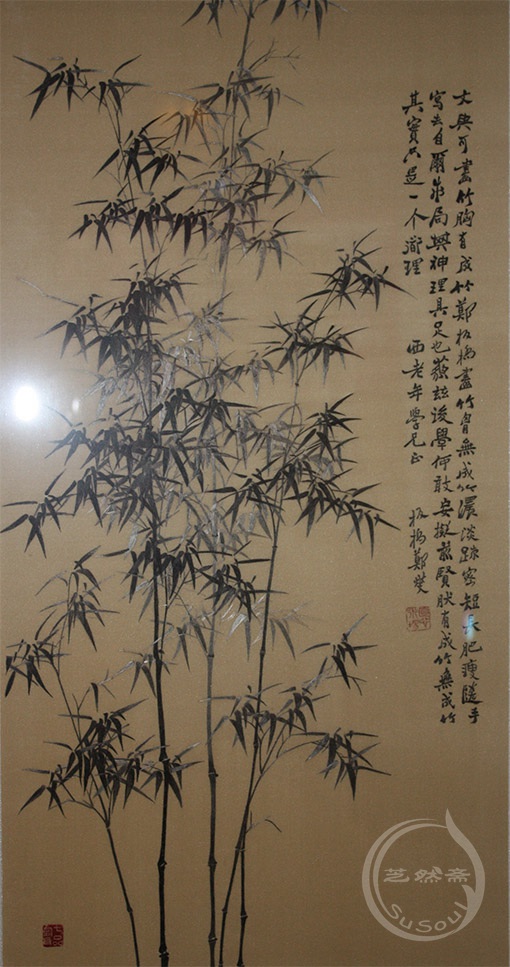 文與可畫竹胸有成竹鄭板橋畫竹胷無成竹濃淡疎密短長肥瘦隨手
寫去自爾成局其神理具足也藐兹後學何敢妄擬前賢肰有成竹無成竹
其實只是一个道理
酉老年學兄正
板橋鄭燮
芝然斋
SuSoul